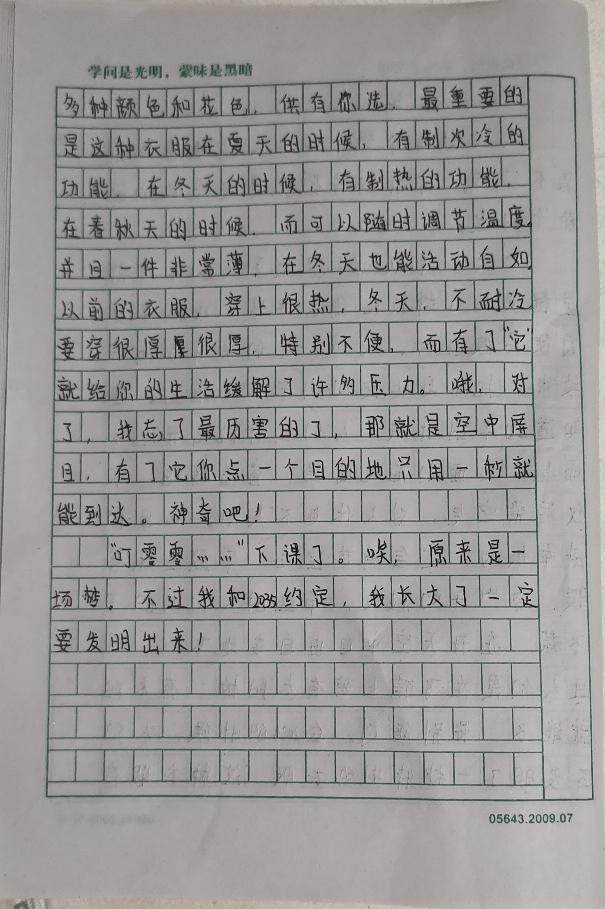 学问是光明，蒙昧是黑暗
多种颜色和花色，供有你选，最重要的
是这种衣服在夏天的时候，有制次冷的
功能，在冬天的时候，有制热的功能，
在春秋天的时候，而可以随时调节温度，
并且一件非常薄，在冬天也能活动自如，
以前的衣服，穿上很热，冬天，不耐冷
要穿很厚厚很厚，特别不便，而有了“它”
就给你的生活缓解了许多压力。哦，对
了，我忘了最历害的了，那就是空中屏
目，有了它你点一个目的地只用一秒就
能到达。神奇吧！
“叮零零……”下课了。唉，原来是一
场梦。不过我和2035约定，我长大了一定
要发明出来！
05643.2009.07